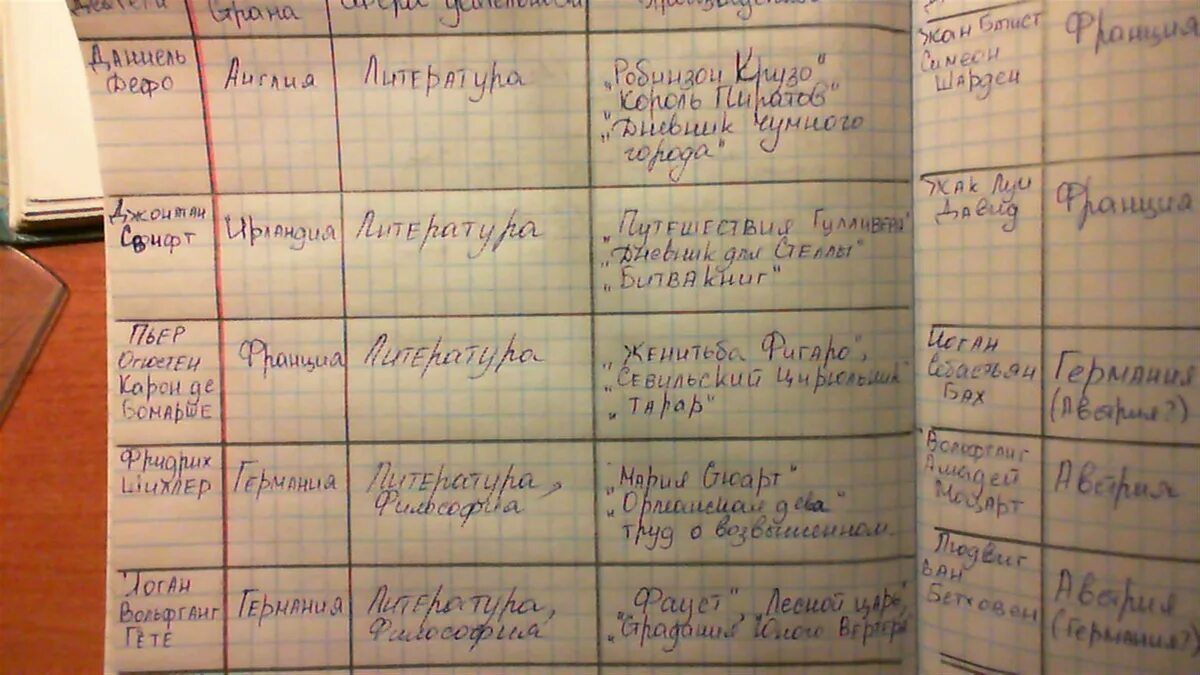 Страна
Сферы деятельности
Даниель
Дефо
Англия
Литература
„Робинзон Крузо"
„Король Пиратов"
„Дневник чумного
города"
Джонтан
Свифт
Ирландия
Литература
„Путешествия Гулливера"
„Дневник для Стеллы"
„Битва книг"
Пьер
Огюстен
Карон де
Бомарше
Франция
Литература
„Женитьба Фигаро",
„Севильский цирюльник"
„Тарар"
Фридрих
Шиллер
Германия
Литература,
Философия
„Мария Стюарт"
„Орлеанская дева"
труд о возвышенном.
Иоган
Вольфганг
Гёте
Германия
Литература,
Философия
„Фауст", „Лесной царь",
„Страдания Юного Вертера"
Жан Батист
Симеон
Шарден
Франция
Жак Луи
Давид
Франция
Иоган
Себастьян
Бах
Германия
(Австрия?)
Вольфганг
Амадей
Моцарт
Австрия
Людвиг
ван
Бетховен
Австрия
(Германия?)